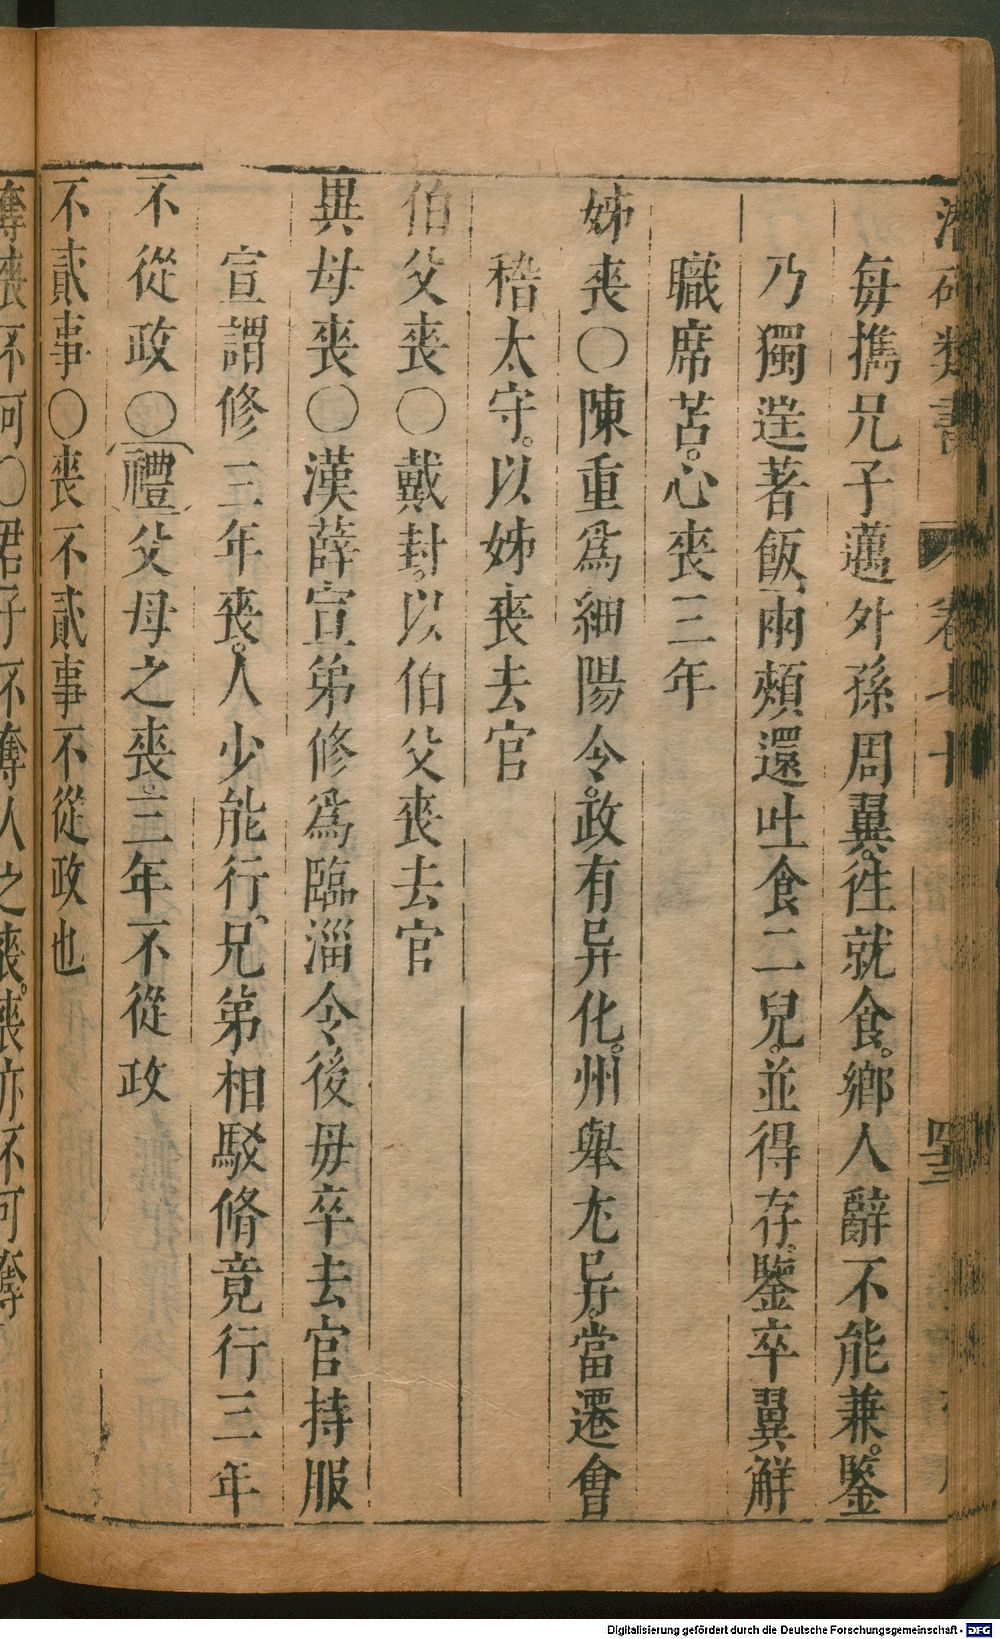 潛研類書 卷七十 四十三
每攜兄子邁外孫周翼。往就食。鄉人辭不能兼。鑒
乃獨送著飯、兩頰還吐食二兒。並得存。鑒卒翼解
職席苫。心喪三年
姊喪○陳重為細陽令。政有异化。州舉尤异。當遷會
稽太守。以姊喪去官
伯父喪○戴封。以伯父喪去官
異母喪○漢薛宣弟修為臨淄令後毋卒去官持服
宣謂修三年喪。人少能行、兄弟相駁脩竟行三年
不從政○禮父母之喪。三年不從政
不貳事○喪不貳事不從政也
奪喪不可○君子不奪人之喪。喪亦不可奪
Digitalisierung gefördert durch die Deutsche Forschungsgemeinschaft - DFG